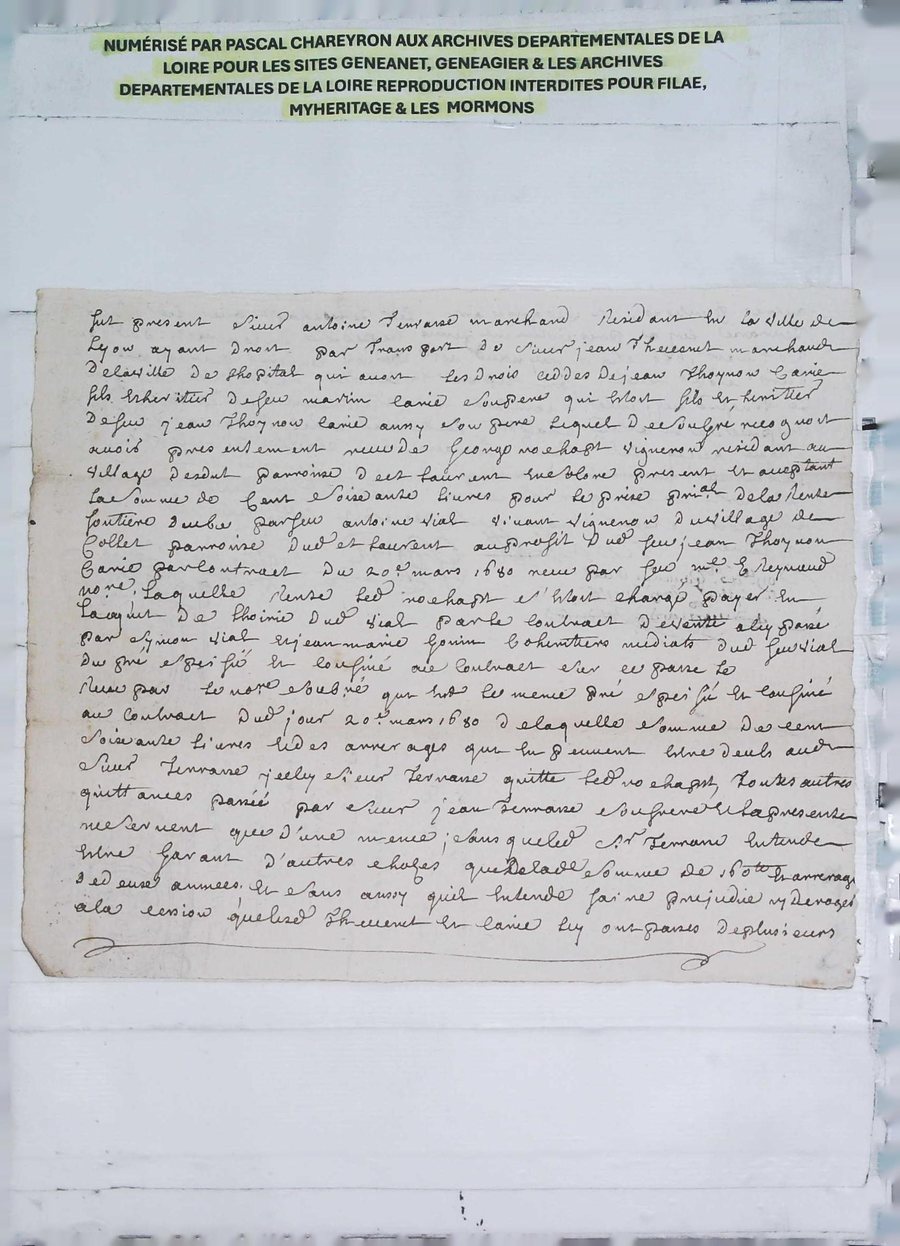 NUMÉRISÉ PAR PASCAL CHAREYRON AUX ARCHIVES DEPARTEMENTALES DE LA
LOIRE POUR LES SITES GENEANET, GENEAGIER & LES ARCHIVES
DEPARTEMENTALES DE LA LOIRE REPRODUCTION INTERDITES POUR FILAE,
MYHERITAGE & LES MORMONS
fut present sieur antoine Terrasse marchand residant en la ville de
Lyon ayant droit par transport de sieur jean Thevenet marchand
delaville de lhopital qui avoit les drois ceddes de jean Thoynon Carié
fils et heritier de feu martin carié son pere qui estoit fils et heritier
de feu jean Thoynon carié aussy son pere lequel de son gré recognoit
avoir presentement receu de George rochapt vigneron residant au
village desdut parroisse de st laurent present et acceptant
la somme de Cent soisante livres pour le prise prinal dela rente
fontiere deube par feu antoine vial vivant vigneron du village de
Collet parroisse dud st laurent au profit dud feu jean Thoynon
Carié par contract du 20e mars 1680 receu par feu me Reynaud
nore. Laquelle rente led rochapt s'estoit chargé payer en
Lacquit de lhoirie dud vial par le contract de vente a luy passé
par vial et jean marie Cohertiers mediats dud feu vial
du pré speifié et confiné au contract sur ce passé le
Receu par le nore soubné qui est le meme pré speifié et confiné
au contract dud jour 20e mars 1680 de laquelle somme de cent
soisante livres et des arrerages qui en peuvent estre deubs aud
sieur Terrasse jcelluy sieur Terrasse quitte led rochapt, toutes autres
quittances passée par sieur jean Terrasse son frere et la presente
ne servent que d'une meme; sans que led Sr Terrasse entende
estre garant d'autres chozes que de lad somme de 160tt et arrerages
de deuse annees. et sans aussy quil entende faire prejudice ny deroger
a la cession que lesd Thevenet et carié luy ont passés de plusieurs